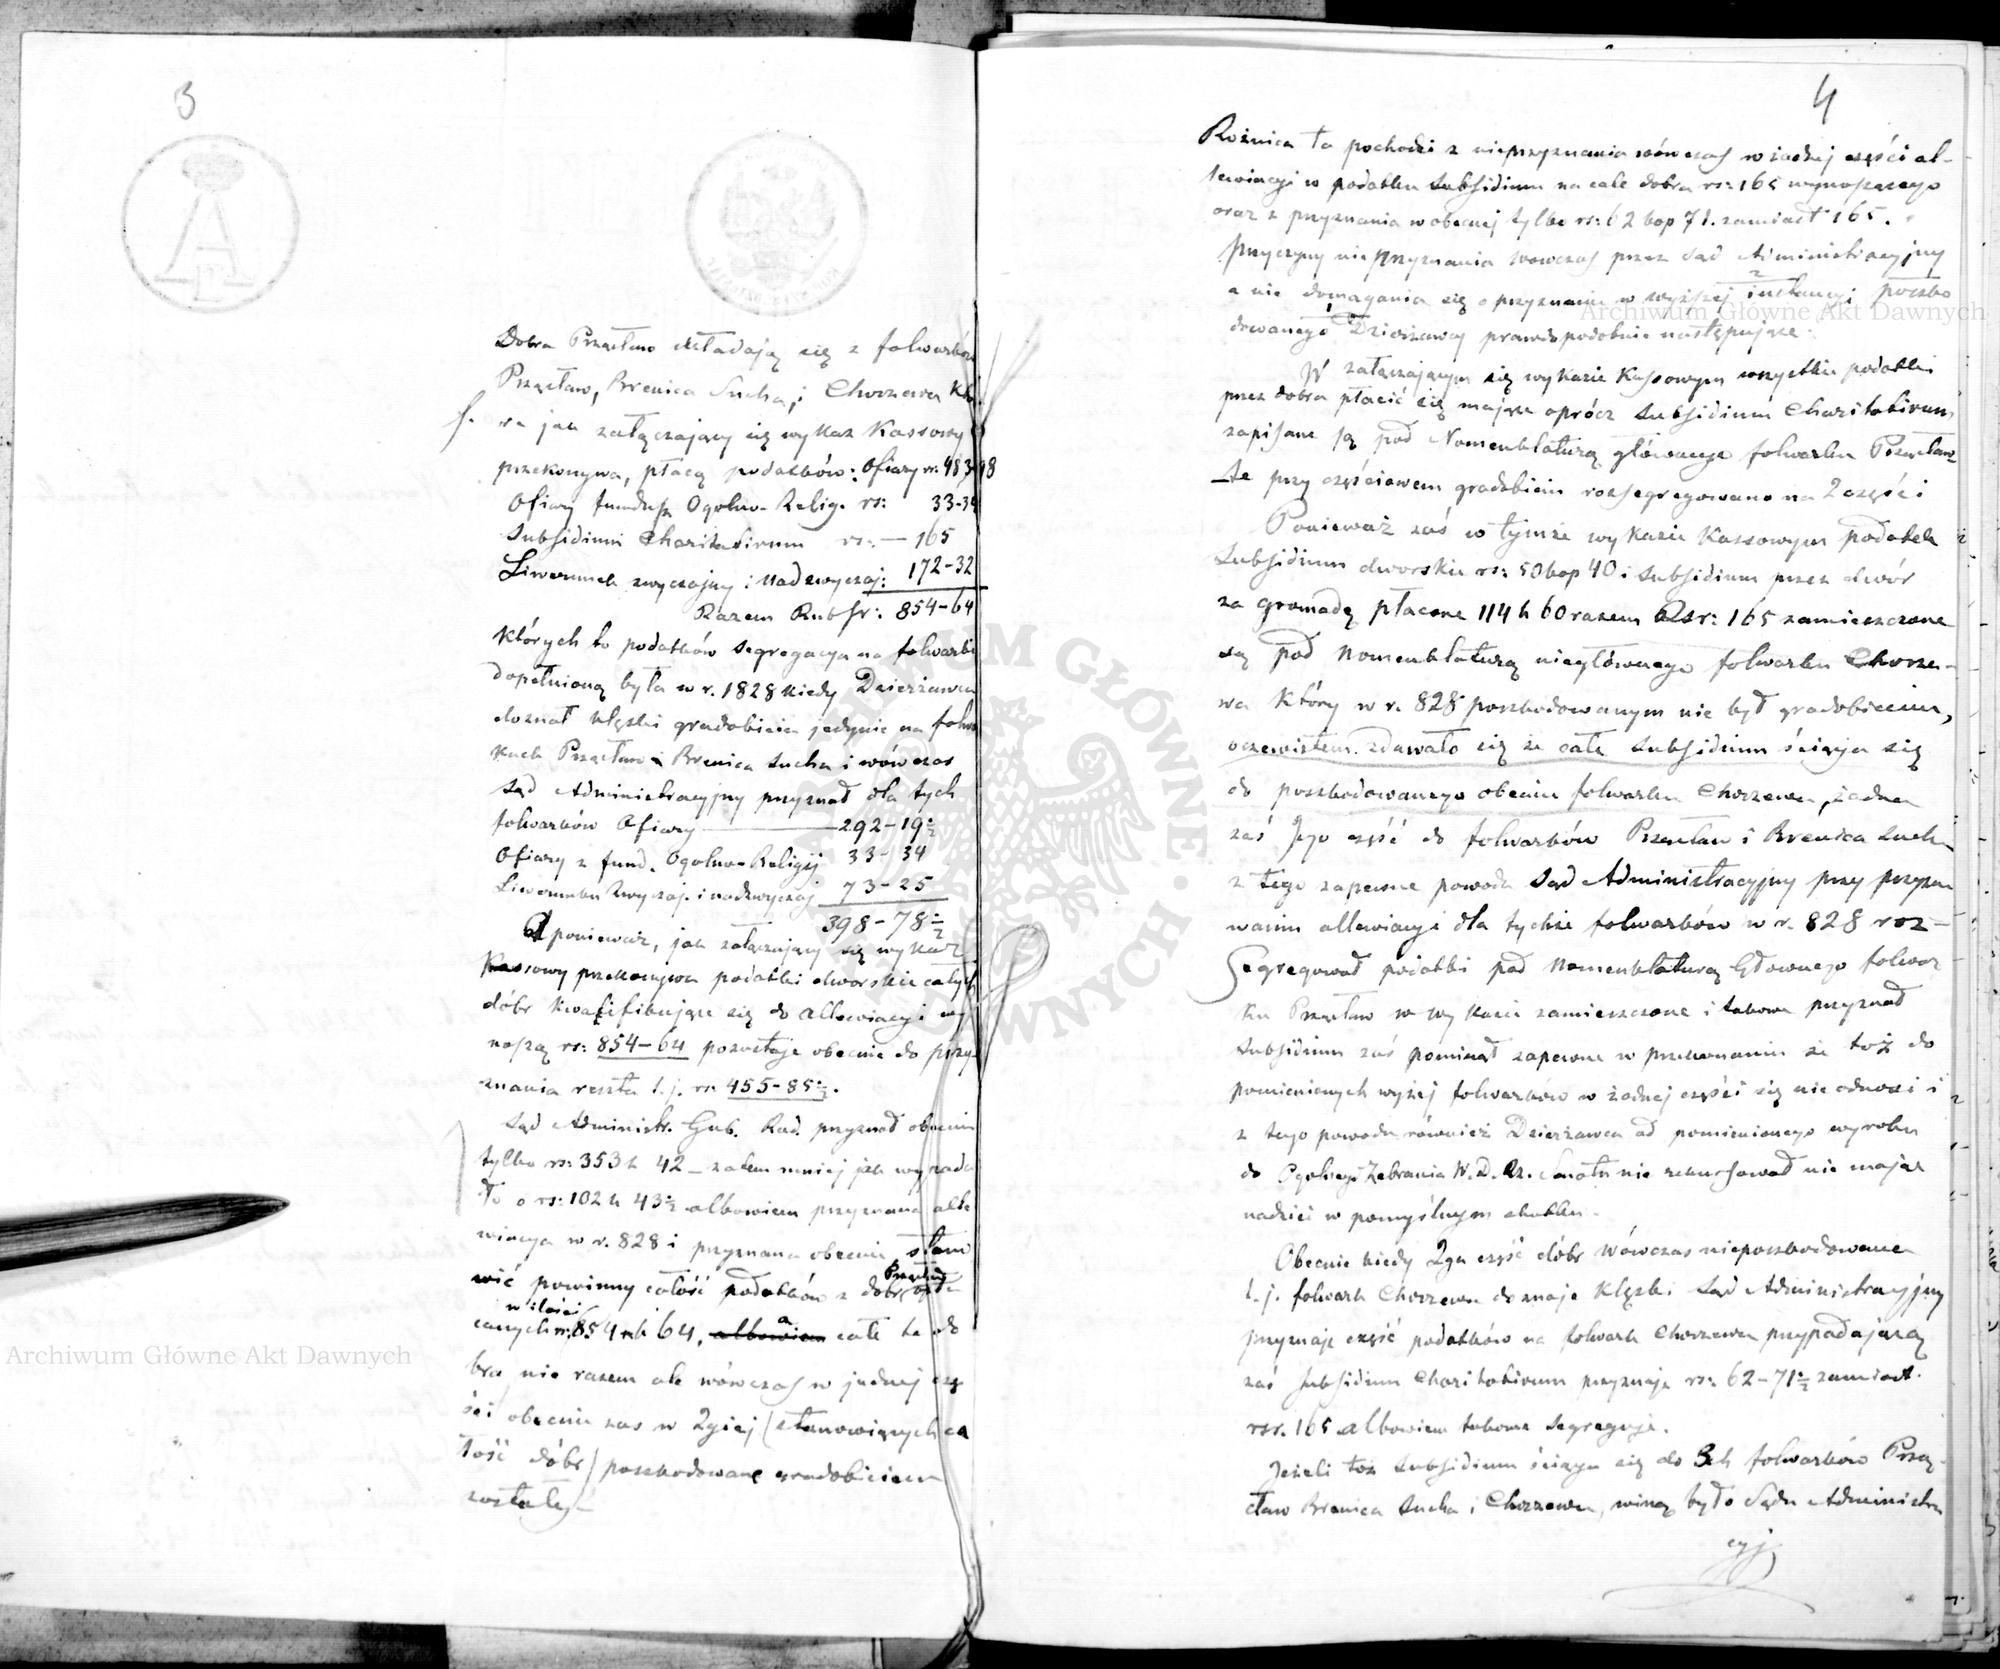 3
Dobra Przecław składają się z folwarków
Przecław, Brenica Sucha, i Chorzewa któ-
f. re jak załączający się wykaz Kassowy
przekonywa, płacą podatków: Ofiary rs: 483-98
Ofiary fundusz Ogolno-Relig. rs: 33-34
Subsidium Charitativum rs: — 165
Liwerunek zwyczajny i nadzwyczaj: 172-32
Razem Rub sr: 854-64
których to podatków segregacya na folwarki
dopełnioną była w r. 1828 kiedy Dzierżawca
doznał klęski gradobicia jedynie na folwar
kach Przecław i Brenica Sucha i wówczas
Sąd Administracyjny przyznał dla tych
folwarków Ofiary — 292-19½
Ofiary z fund. Ogolno-Religij 33-34
Liwerunku zwyczaj. i nadzwyczaj 73-25
398-78½
A ponieważ, jak załączający się wykaz
Kassowy przekonywa podatki dworskie całych
dóbr kwalifikujące się do allewiacyi wy
noszą rs: 854-64 pozostaje obecnie do przy-
znania reszta t.j. rs 455-85½.
Sąd Administr. Gub. Rad. przyznał obecnie
tylko rs: 353 k 42 – zatem mniej jak wypada
ło o rs: 102 k 43½ albowiem przyznana alle
wiacya w r. 828 i przyznana obecnie stano
wić powinny całość podatków z dóbr Przecław opła
canych w ilości rs: 854 k 64, albowiem a całe te do
bra nie razem ale wówczas w jednej czę
ści obecnie zaś w 2giej (stanowiących ca
łość dóbr) poszkodowane gradobiciem
zostały.
4
Rożnica ta pochodzi z nieprzyznania wówczas w żadnej części al-
lewiacyi w podatku Subsidium na całe dobra rs: 165 wynoszącego
oraz z przyznania w obecnej tylko rs: 62 kop 71. zamiast 165.
Przyczyny nieprzyznania wowczas przez Sąd Administracyjny
a nie domagania się o przyznanie w wyższej 2 instancyi poszko
dowanego Dzierżawcy prawdopodobnie następujące:
W załączającym się wykazie Kassowym wszystkie podatki
przez dobra płacić się mające oprócz Subsidium Charitativum
zapisane są pod Nomenklaturą głównego folwarku Przecław
te przy częściowem gradobiciu rozsegregowano na 2 części
Ponieważ zaś w tymże wykazie Kassowym podatek
Subsidium dworskie rs: 50 kop 40 i Subsidium przez dwór
za gromadę płacone 114 k 60 razem Rsr: 165 zamieszczone
są pod Nomenklaturą niegłównego folwarku Chorze-
wa który w r. 828 poszkodowanym nie był gradobiciem,
oczewistem zdawało się że całe Subsidium ściąga się
do poszkodowanego obecnie folwarku Chorzewa, żadna
zaś Jego część do folwarków Przecław i Brenica Sucha
z tego zapewne powodu Sąd Administracyjny przy przyzna
waniu allewiacyi dla tychże folwarków w r. 828 roz-
segregował podatki pod Nomenklaturą Głownego folwar
ku Przecław w wykazie zamieszczone i takowe przyznał
Subsidium zaś pominął zapewne w przekonaniu że toż do
pomienionych wyżej folwarków w żadnej części się nie odnosi i
z tego powodu również Dzierżawca od pomienionego wyroku
do Ogolnego Zebrania W. D. Rz. Senatu nie rekursował nie mając
nadziei w pomyślnym skutku.
Obecnie kiedy 2ga część dóbr wówczas nieposzkodowana
t. j. folwark Chorzewa doznaje klęski Sąd Administracyjny
przyznaje część podatków na folwark Chorzewa przypadającą
zaś Subsidium Charitativum przyznaje rs: 62-71½ zamiast
rsr. 165 albowiem takowe segreguje.
Jeżeli toż Subsidium ściąga się do 3ch folwarków Prze-
cław Brenica Sucha i Chorzewa, winą było Sądu Administra
cyj
Archiwum Główne Akt Dawnych
Archiwum Główne Akt Dawnych